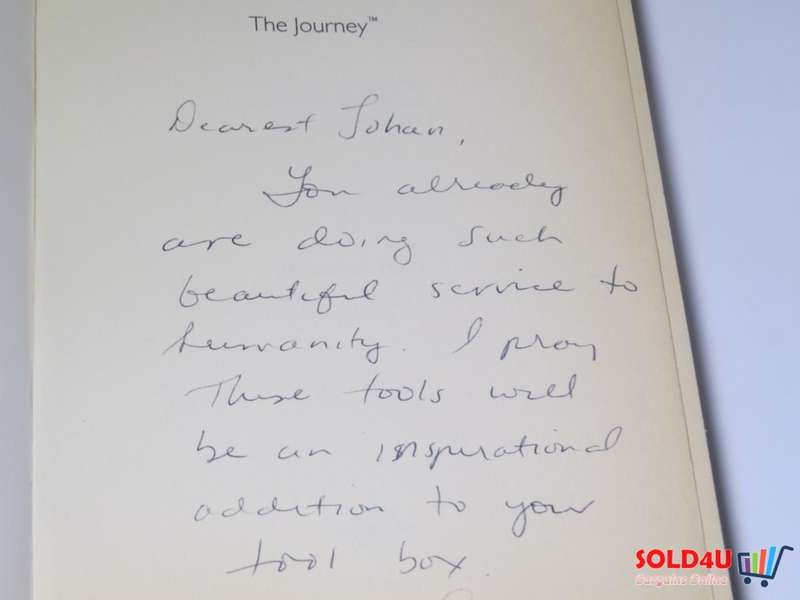 The Journey™
Dearest Johan,
You already
are doing such
beautiful service to
humanity. I pray
These tools will
be an inspirational
addition to your
tool box.
SOLD4U
Bargains Online